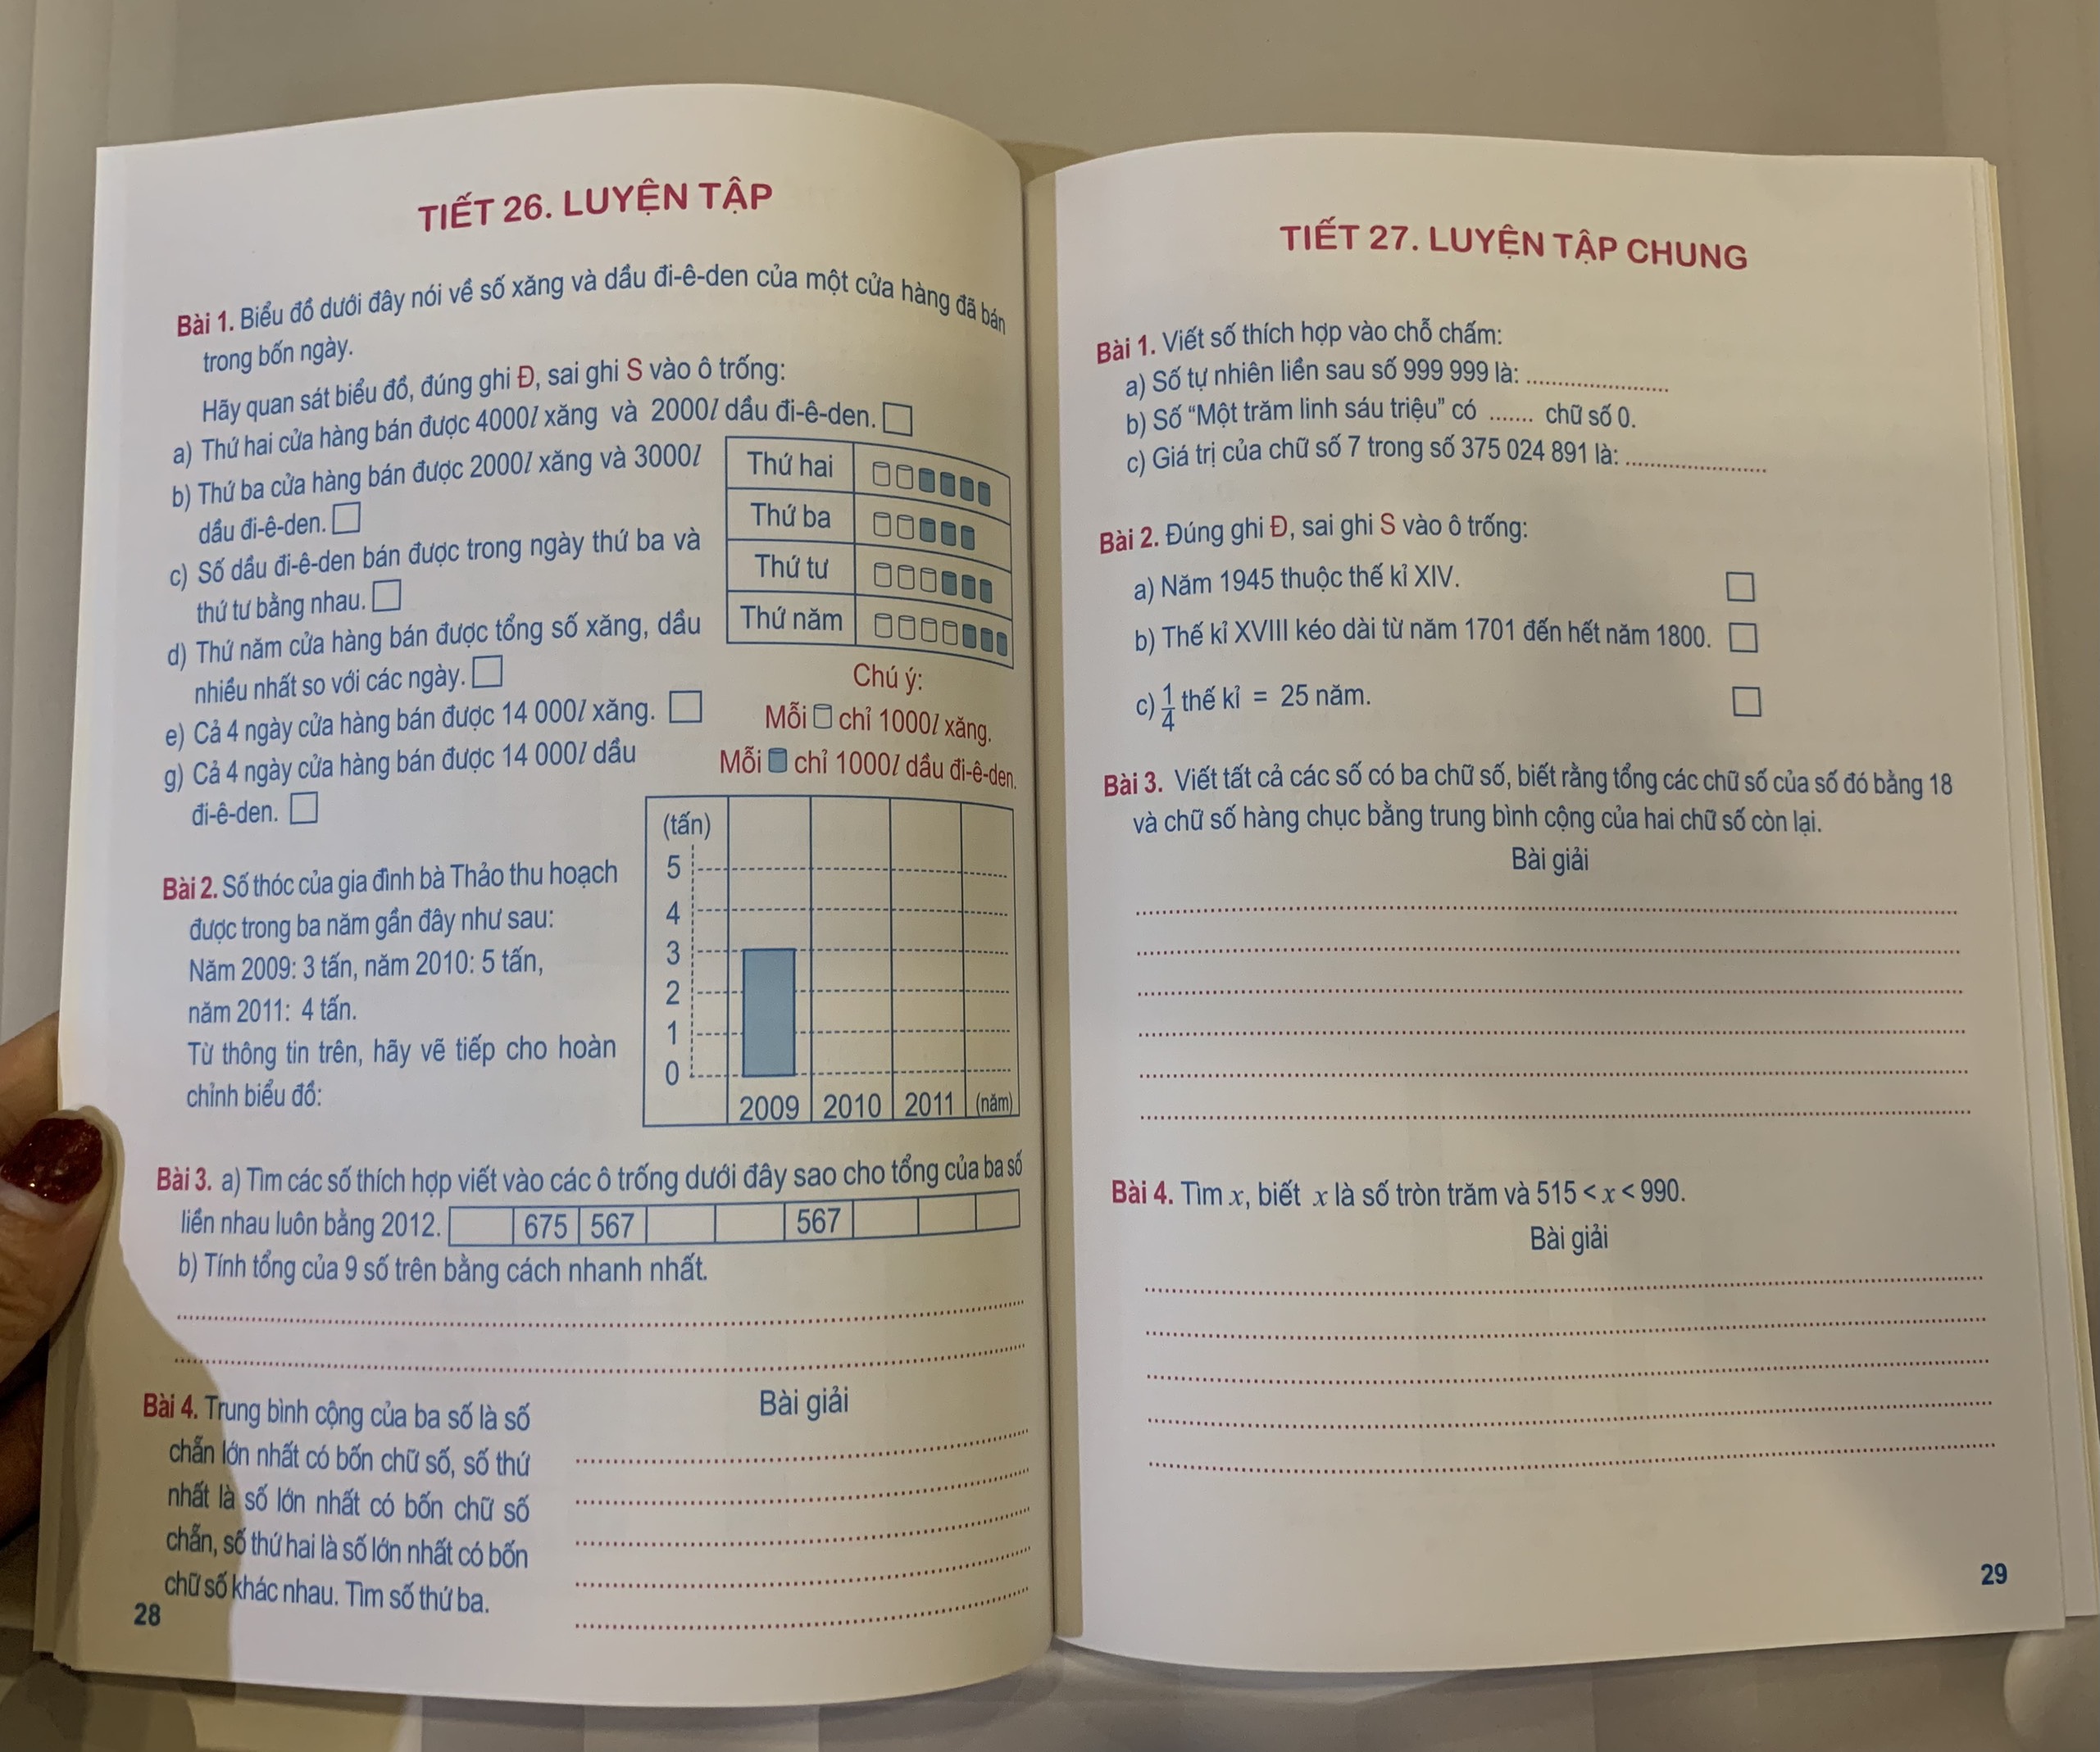 TIẾT 26. LUYỆN TẬP
Bài 1. Biểu đồ dưới đây nói về số xăng và dầu đi-ê-den của một cửa hàng đã bán
trong bốn ngày.
Hãy quan sát biểu đồ, đúng ghi Đ, sai ghi S vào ô trống:
a) Thứ hai cửa hàng bán được 4000l xăng và 2000l dầu đi-ê-den.
b) Thứ ba cửa hàng bán được 2000l xăng và 3000l
dầu đi-ê-den.
c) Số dầu đi-ê-den bán được trong ngày thứ ba và
thứ tư bằng nhau.
d) Thứ năm cửa hàng bán được tổng số xăng, dầu
nhiều nhất so với các ngày.
e) Cả 4 ngày cửa hàng bán được 14 000l xăng.
g) Cả 4 ngày cửa hàng bán được 14 000l dầu
đi-ê-den.
Thứ hai
Thứ ba
Thứ tư
Thứ năm
Chú ý:
Mỗi chỉ 1000l xăng.
Mỗi chỉ 1000l dầu đi-ê-den.
Bài 2. Số thóc của gia đình bà Thảo thu hoạch
được trong ba năm gần đây như sau:
Năm 2009: 3 tấn, năm 2010: 5 tấn,
năm 2011: 4 tấn.
Từ thông tin trên, hãy vẽ tiếp cho hoàn
chỉnh biểu đồ:
(tấn)
5
4
3
2
1
0
2009 2010 2011 (năm)
Bài 3. a) Tìm các số thích hợp viết vào các ô trống dưới đây sao cho tổng của ba số
liền nhau luôn bằng 2012. 675 567 567
b) Tính tổng của 9 số trên bằng cách nhanh nhất.
Bài 4. Trung bình cộng của ba số là số
chẵn lớn nhất có bốn chữ số, số thứ
nhất là số lớn nhất có bốn chữ số
chẵn, số thứ hai là số lớn nhất có bốn
chữ số khác nhau. Tìm số thứ ba.
Bài giải
28
TIẾT 27. LUYỆN TẬP CHUNG
Bài 1. Viết số thích hợp vào chỗ chấm:
a) Số tự nhiên liền sau số 999 999 là: ........................
b) Số “Một trăm linh sáu triệu” có ....... chữ số 0.
c) Giá trị của chữ số 7 trong số 375 024 891 là: ........................
Bài 2. Đúng ghi Đ, sai ghi S vào ô trống:
a) Năm 1945 thuộc thế kỉ XIV.
b) Thế kỉ XVIII kéo dài từ năm 1701 đến hết năm 1800.
c) 1/4 thế kỉ = 25 năm.
Bài 3. Viết tất cả các số có ba chữ số, biết rằng tổng các chữ số của số đó bằng 18
và chữ số hàng chục bằng trung bình cộng của hai chữ số còn lại.
Bài giải
Bài 4. Tìm x, biết x là số tròn trăm và 515 < x < 990.
Bài giải
29